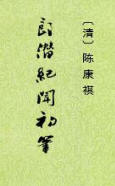 〔清〕陈康祺
郎潜紀聞初筆